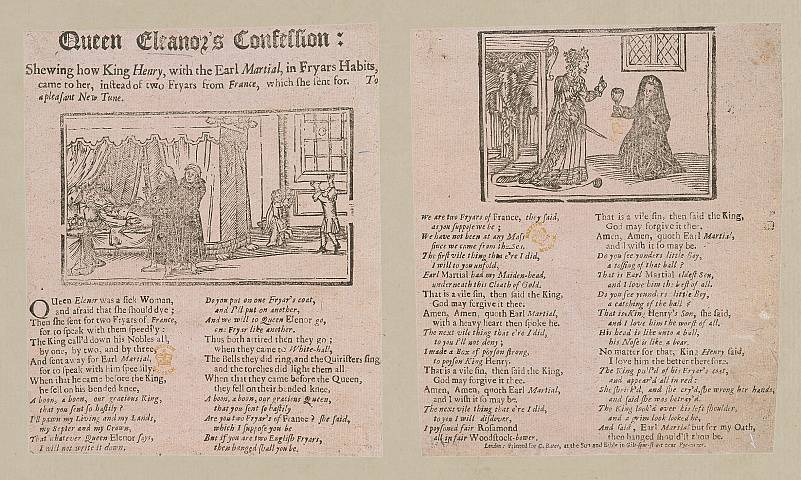 Queen Eleanor's Confession:
Shewing how King Henry, with the Earl Martial, in Fryars Habits,
came to her, instead of two Fryars from France, which she sent for. To
a pleasant New Tune.
QUeen Elenor was a sick Woman,
and afraid that she should dye;
Then she sent for two Fryars of France,
for to speak with them speedily:
The King call'd down his Nobles all,
by one, by two, and by three,
And sent away for Earl Martial,
for to speak with him speedily.
When that he came before the King,
he fell on his bended knee,
A boon, a boon, our gracious King,
that you sent so hastily?
I'll pawn my Living and my Lands,
my Septer and my Crown,
That whatever Queen Elenor says,
I will not write it down.
Do you put on one Fryar's coat,
and I'll put on another,
And we will to Queen Elenor go,
one Fryar like another.
Thus both attired then they go;
when they came to White-hall,
The Bells they did ring, and the Quiristers sing,
and the torches did light them all.
When that they came before the Queen,
they fell on their bended knee,
A boon, a boon, our gracious Queen,
that you sent so hastily
Are you two Fryar's of France? she said,
which I suppose you be
But if you are two English Fryars,
then hanged shall you be.
We are two Fryars of France, they said,
as you suppose we be;
We have not been at any Mass
since we came from the Sea.
The first vile thing that e're I did,
I will to you unfold,
Earl Martial had my Maiden-head,
underneath this Cloath of Gold.
That is a vile sin, then said the King,
God may forgive it thee.
Amen, Amen, quoth Earl Martial,
with a heavy heart then spoke he.
The next vile thing that e're I did,
to you I'll not deny;
I made a Box of poyson strong,
to poison King Henry.
That is a vile sin, then said the King,
God may forgive it thee.
Amen, Amen, quoth Earl Martial,
and I wish it so may be.
The next vile thing that e're I did,
to you I will discover,
I poysoned fair Rosamond
all in fair Woodstock-bower.
That is a vile sin, then said the King,
God may forgive it thee.
Amen, Amen, quoth Earl Martial,
and I wish it so may be.
Do you see yonders little Boy,
a tossing of that ball?
That is Earl Martial eldest Son,
and I love him the best of all.
Do you see yonders little Boy,
a catching of the ball?
That is King Henry's Son, she said,
and I love him the worst of all.
His head is like unto a bull,
his Nose is like a boar,
No matter for that, King Henry said,
I love him the better therefore.
The King pull'd of his Fryar's coat,
and appear'd all in red:
She shriek'd, and she cry'd, she wrong her hands,
and said she was betray'd.
The King look'd over his left shoulder,
and a grim look looked he,
And said, Earl Martial but for my Oath,
then hanged should'st thou be.
London: Printed for C. Bates, at the Sun and Bible in Gilt-spur-street near Pye-corner.